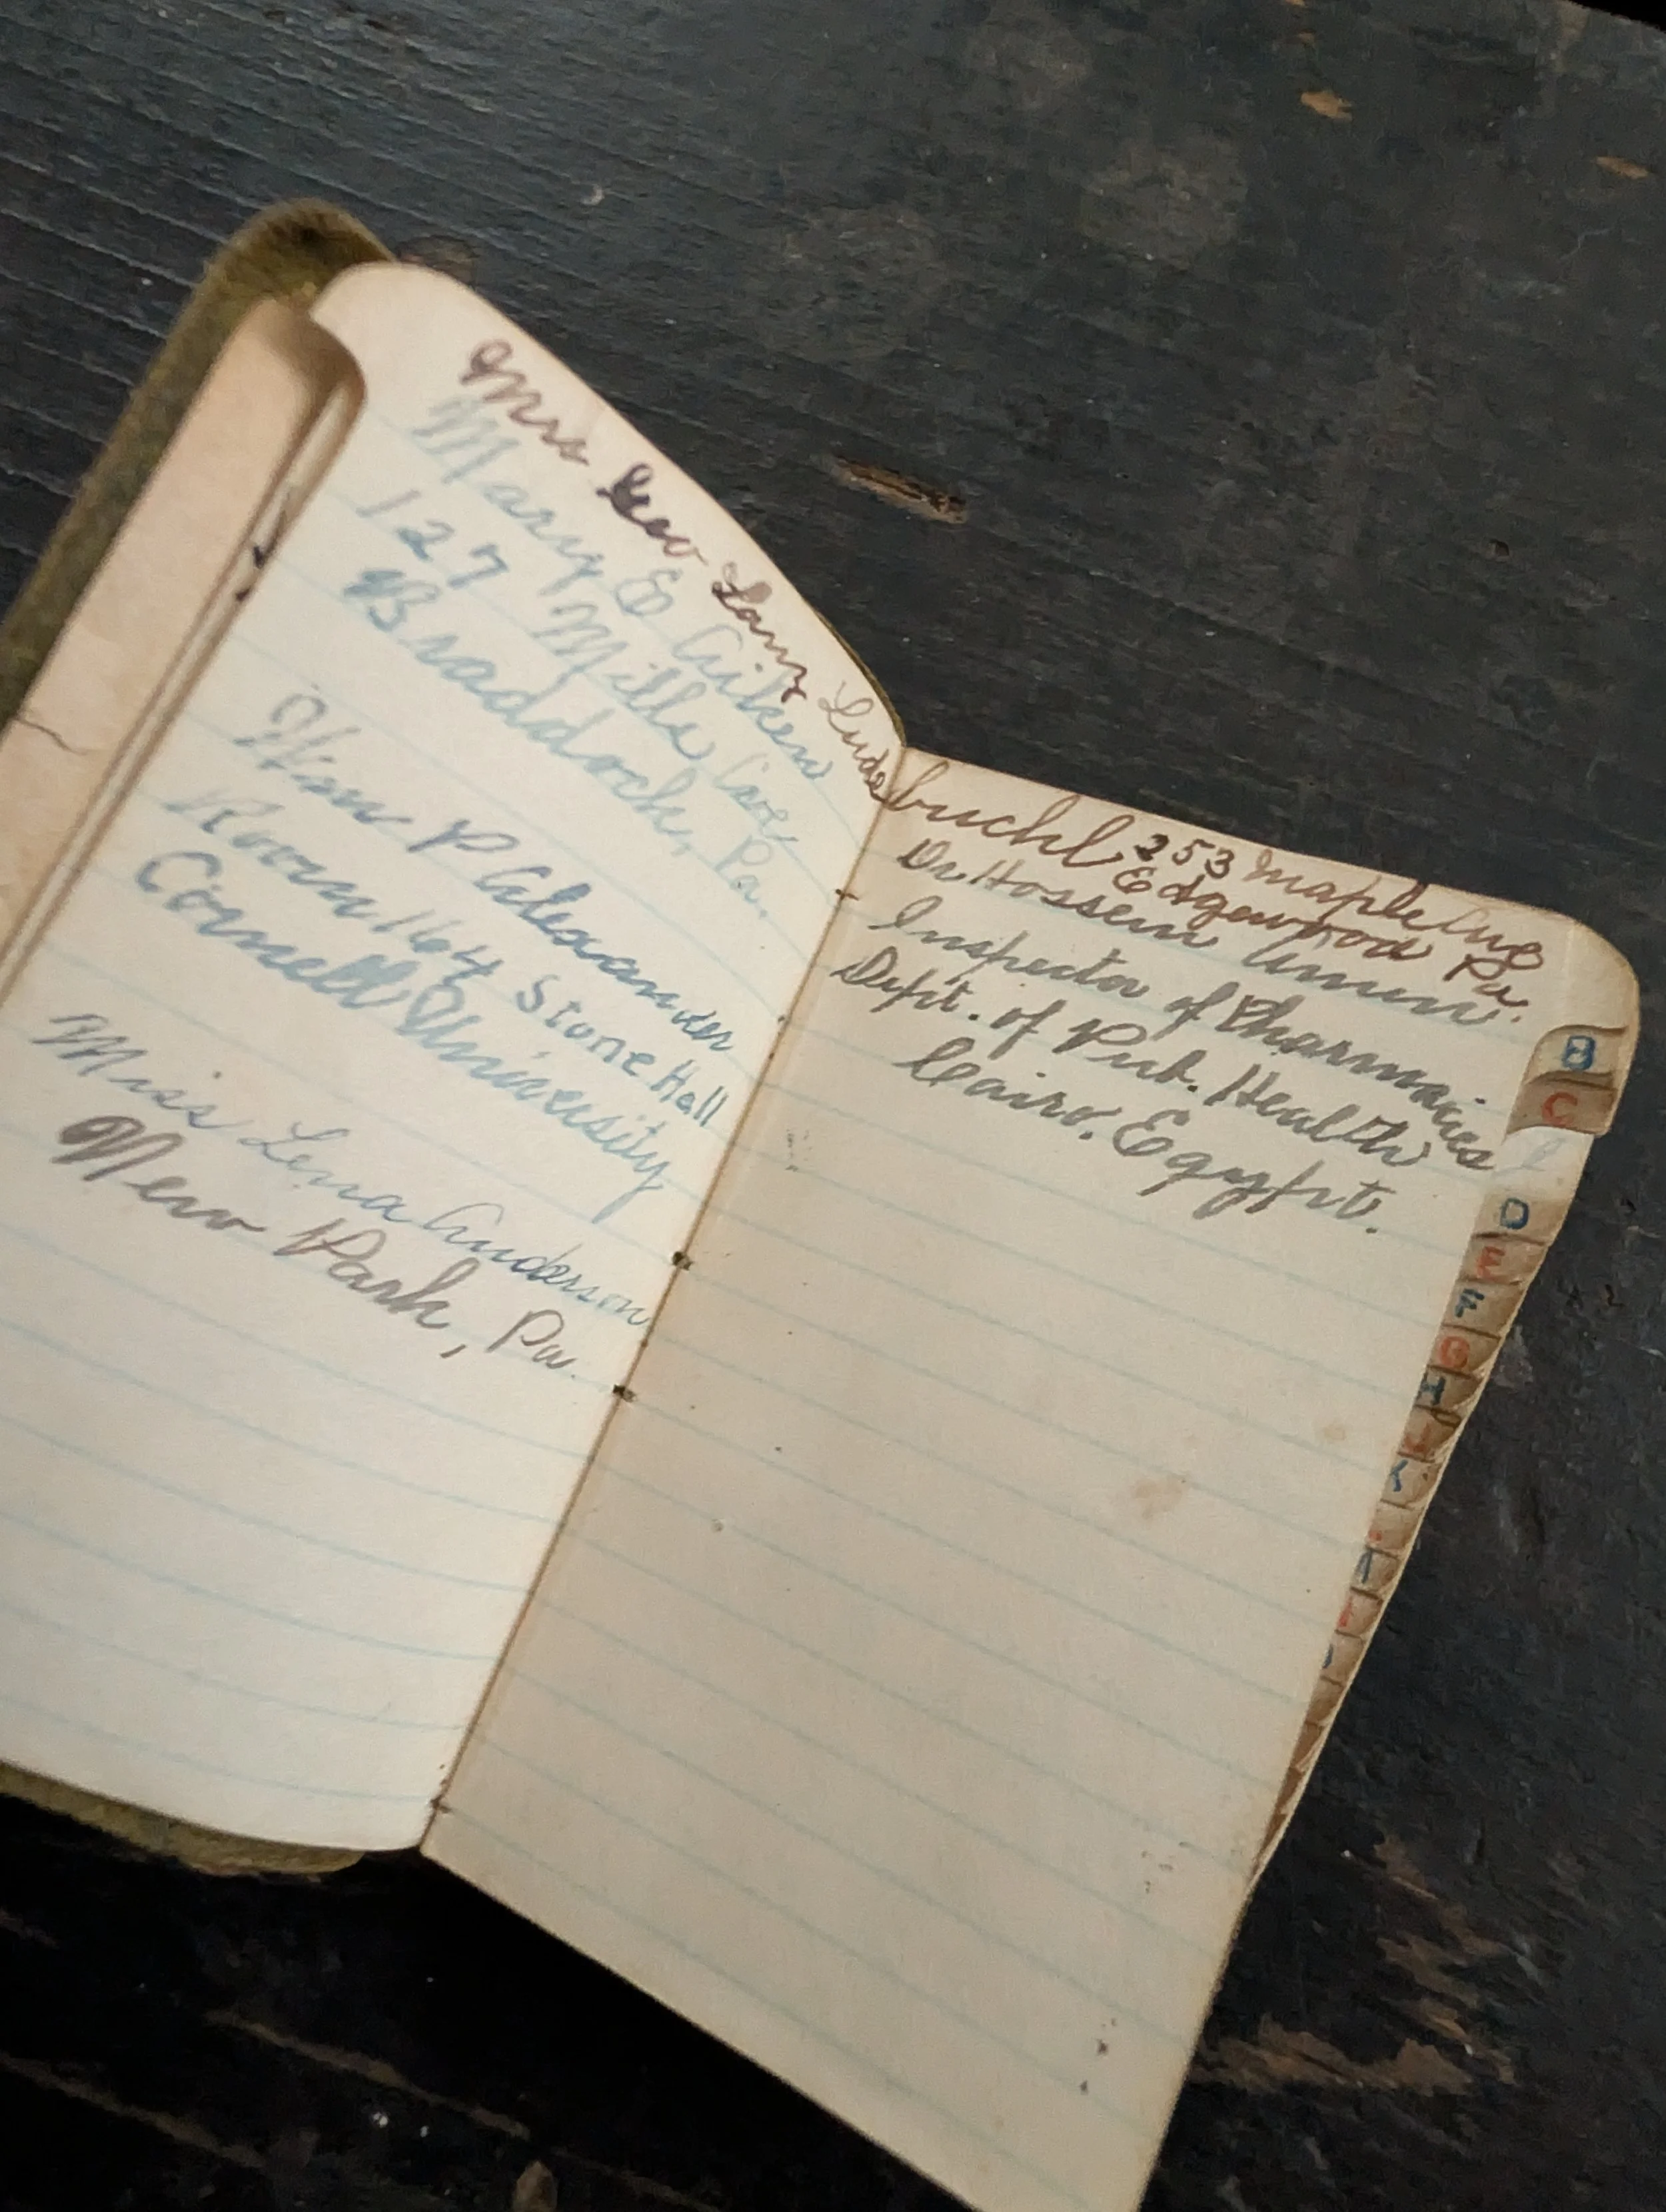 Mrs Geo Lang Ludebuehl 253 Maple Ave
Edgewood Pa
Mary E Aiken
127 Mills Ave
Braddock, Pa.
Wm P Alexander
Room 164 Stone Hall
Cornell University
Miss Lena Anderson
New Park, Pa.
Dr Hossein Amin.
Inspector of Pharmacies
Dept. of Pub. Health
Cairo. Egypt.
B
C
D
E
F
G
H